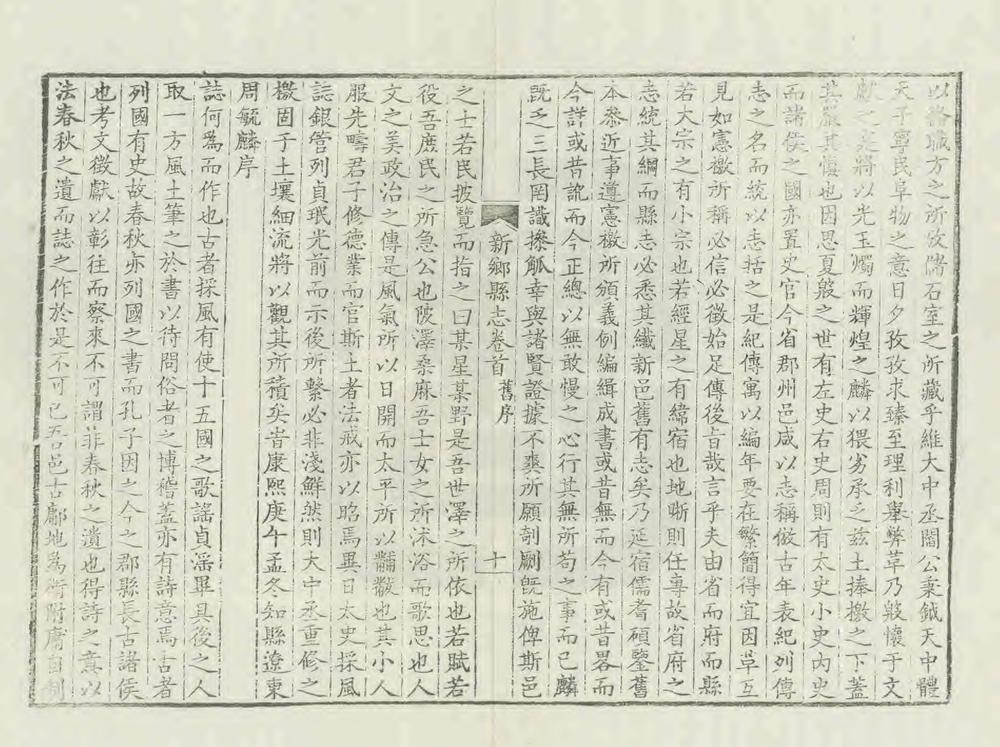 以詔職方之所攷儲石室之所藏乎維大中丞閻公秉鉞天中體
天子寧民阜物之意日夕孜孜求臻至理利舉弊革乃殷懷于文
將以光玉燭而輝煌之麟以猥劣承乏茲土捧檄之下蓋
其嚴其慢也因思夏殷之世有左史右史周則有太史小史內史
而諸侯之國亦置史官今省郡州邑咸以志稱倣古年表紀列傳
志之名而統以志括之是紀傳寓以編年要在繁簡得宜因革互
見如憲檄所稱必信必徵始足傳後旨哉言乎夫由省而府而縣
若大宗之有小宗也若經星之有緯宿也地晰則任專故省府之
志統其綱而縣志必悉其纖新邑舊有志矣乃延宿儒耆碩鑒舊
本叅近事遵憲檄所頒義例編緝成書或昔無而今有或昔畧而
今詳或昔訛而今正總以無敢慢之心行其無所苟之事而已麟
旣乏三長罔識摻觚幸與諸賢證據不爽所願剞劂旣施俾斯邑
新鄉縣志卷首 舊序 十
之士若民披覽而指之曰某星某野是吾世澤之所依也若賦若
役吾庶民之所急公也陂澤桑麻吾士女之所沬浴而歌思也人
文之美政治之傳是風氣所以日開而太平所以黼黻也其小人
服先疇君子修德業而官斯土者法戒亦以昭焉異日太史採風
誌銀管列貞珉光前而示後所繫必非淺鮮然則大中丞重修之
檄固于土壤細流將以觀其所積矣旹康熙庚午孟冬知縣遼東
周毓麟序
誌何為而作也古者採風有使十五國之歌謠貞淫畢具後之人
取一方風土筆之於書以待問俗者之博稽蓋亦有詩意焉古者
列國有史故春秋亦列國之書而孔子因之今之郡縣長古諸侯
也考文徵獻以彰往而察來不可謂非春秋之遺也得詩之意以
法春秋之遺而誌之作於是不可已吾邑古鄘地為衛附庸自制